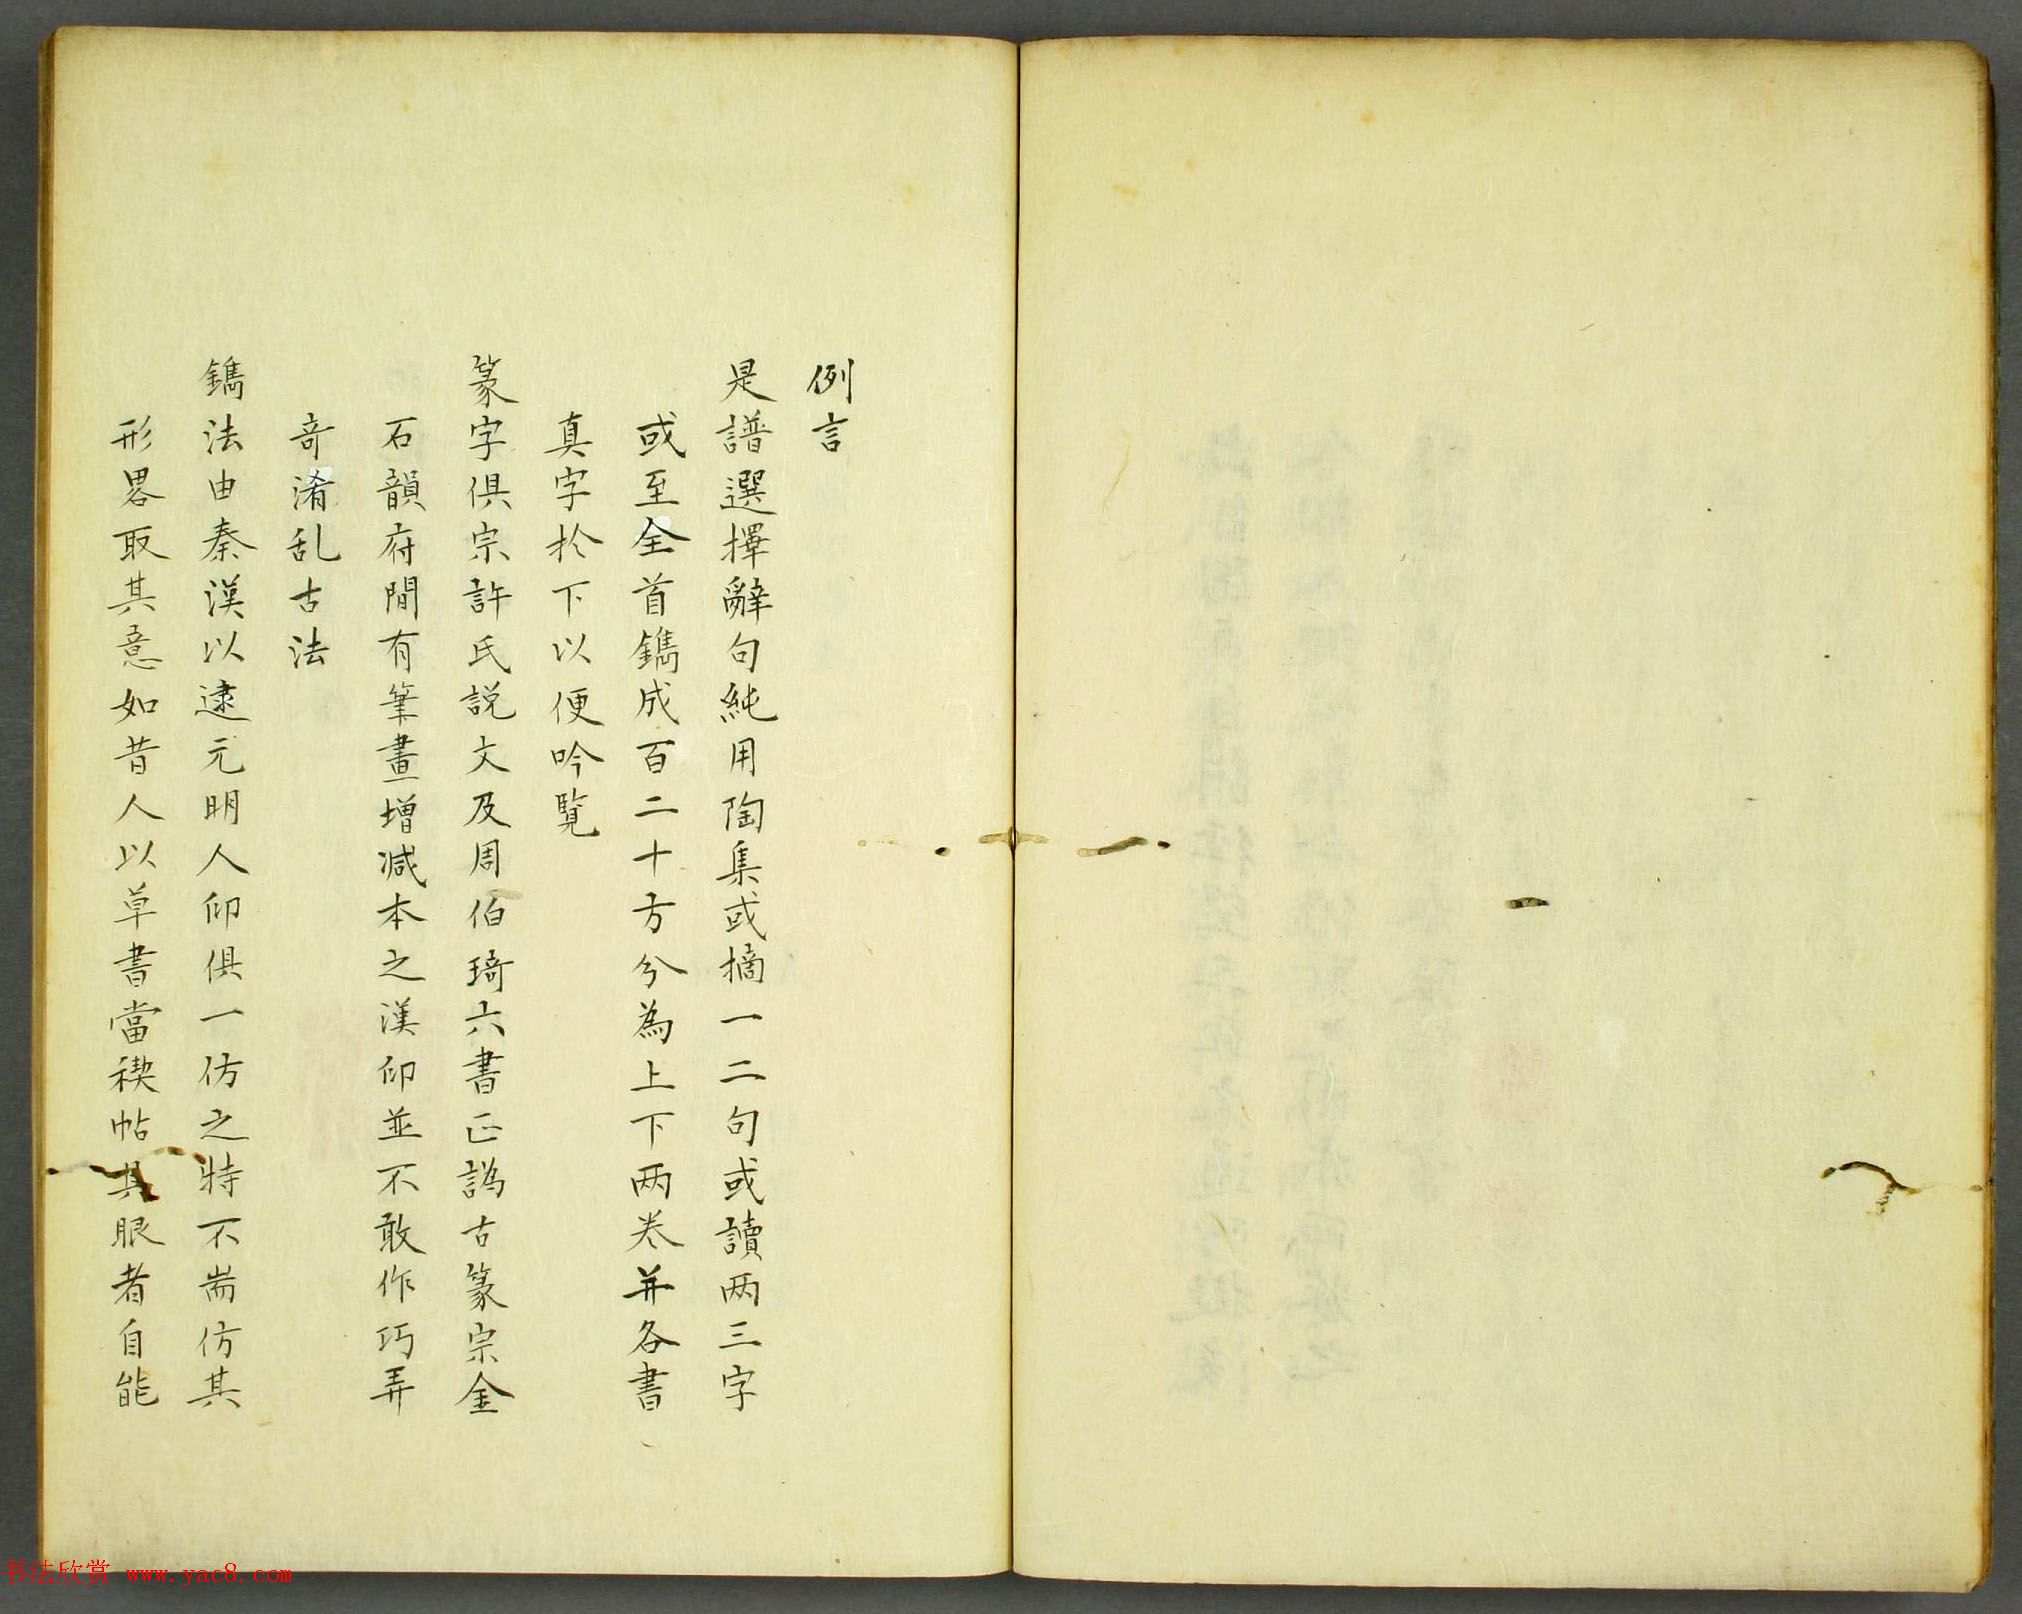 例言
是譜選擇辭句純用陶集或摘一二句或讀两三字
或至全首鐫成百二十方分為上下两卷并各書
真字於下以便吟覽
篆字俱宗許氏説文及周伯琦六書正譌古篆宗金
石韻府間有筆畫增减本之漢印並不敢作巧弄
奇淆乱古法
鐫法由秦漢以逮元明人印俱一仿之特不耑仿其
形畧取其意如昔人以草書當稧帖具眼者自能
书法欣赏 www.yac8.com